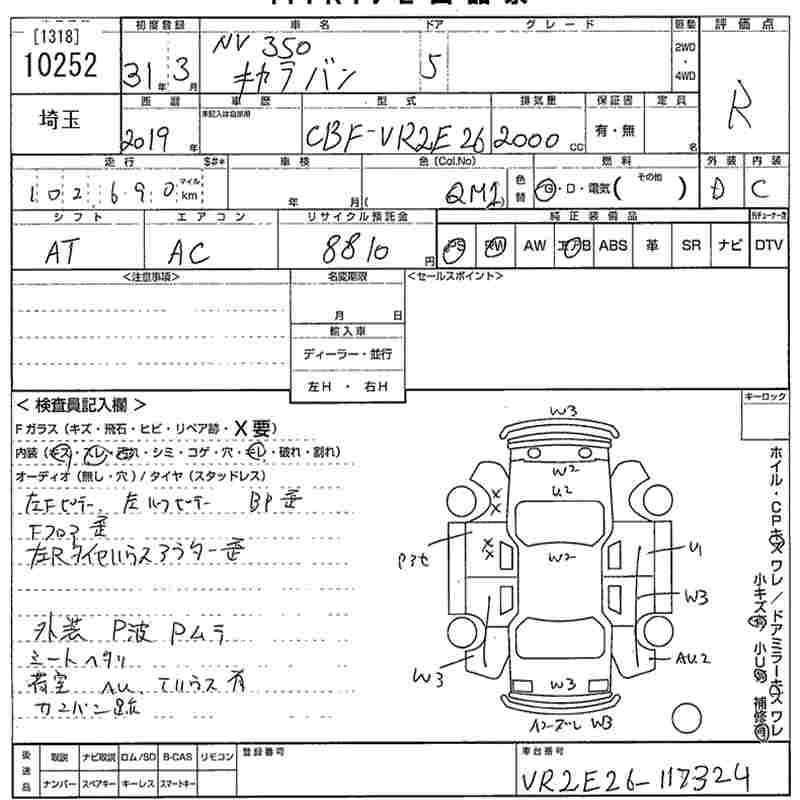 [1318]
10252
埼玉
初度登録
31年 3月
車名
NV 350
キャラバン
ドア
5
グレード
駆動
2WD
・
4WD
評価点
R
西暦
2019年
車歴
未記入は自家用
型式
CBF-VR2E26
排気量
2000 CC
保証書
有・無
定員
名
走行
102,690
マイル
km
$#*
車検
年 月
色(Col.No)
( QM1
色替
燃料
G・D・電気( その他 )
外装
D
内装
C
シフト
AT
エアコン
AC
リサイクル預託金
8810円
純正装備品
PS PW AW エアB ABS 革 SR ナビ DTV
<注意事項>
名変期限
月 日
輸入車
ディーラー・並行
左H ・ 右H
<セールスポイント>
< 検査員記入欄 >
Fガラス(キズ・飛石・ヒビ・リペア跡・X要)
内装(キズ・スレ・凸凹・シミ・コゲ・穴・キレ・破れ・割れ)
オーディオ(無し・穴)/タイヤ(スタッドレス)
左Fピラー、左ルーフピラー BP歪
Fフロア歪
左Rタイヤハウスアウター歪
外装 P波 Pムラ
シートヘタリ
荷室 AU、Tハウス有
カンバン跡
キーロック
ホイル・CPキズワレ/ドアミラーキズワレ
小キズ有 小U有 補修有
W3
W2
U2
XX
XX
P3セ
W2
U1
W3
W3
AU2
W3
W3
後送品
取説 ナビ取説 ロム/SD B-CAS リモコン
ナンバー スペアキー キーレス スマートキー
登録番号
車台番号
VR2E26-117324